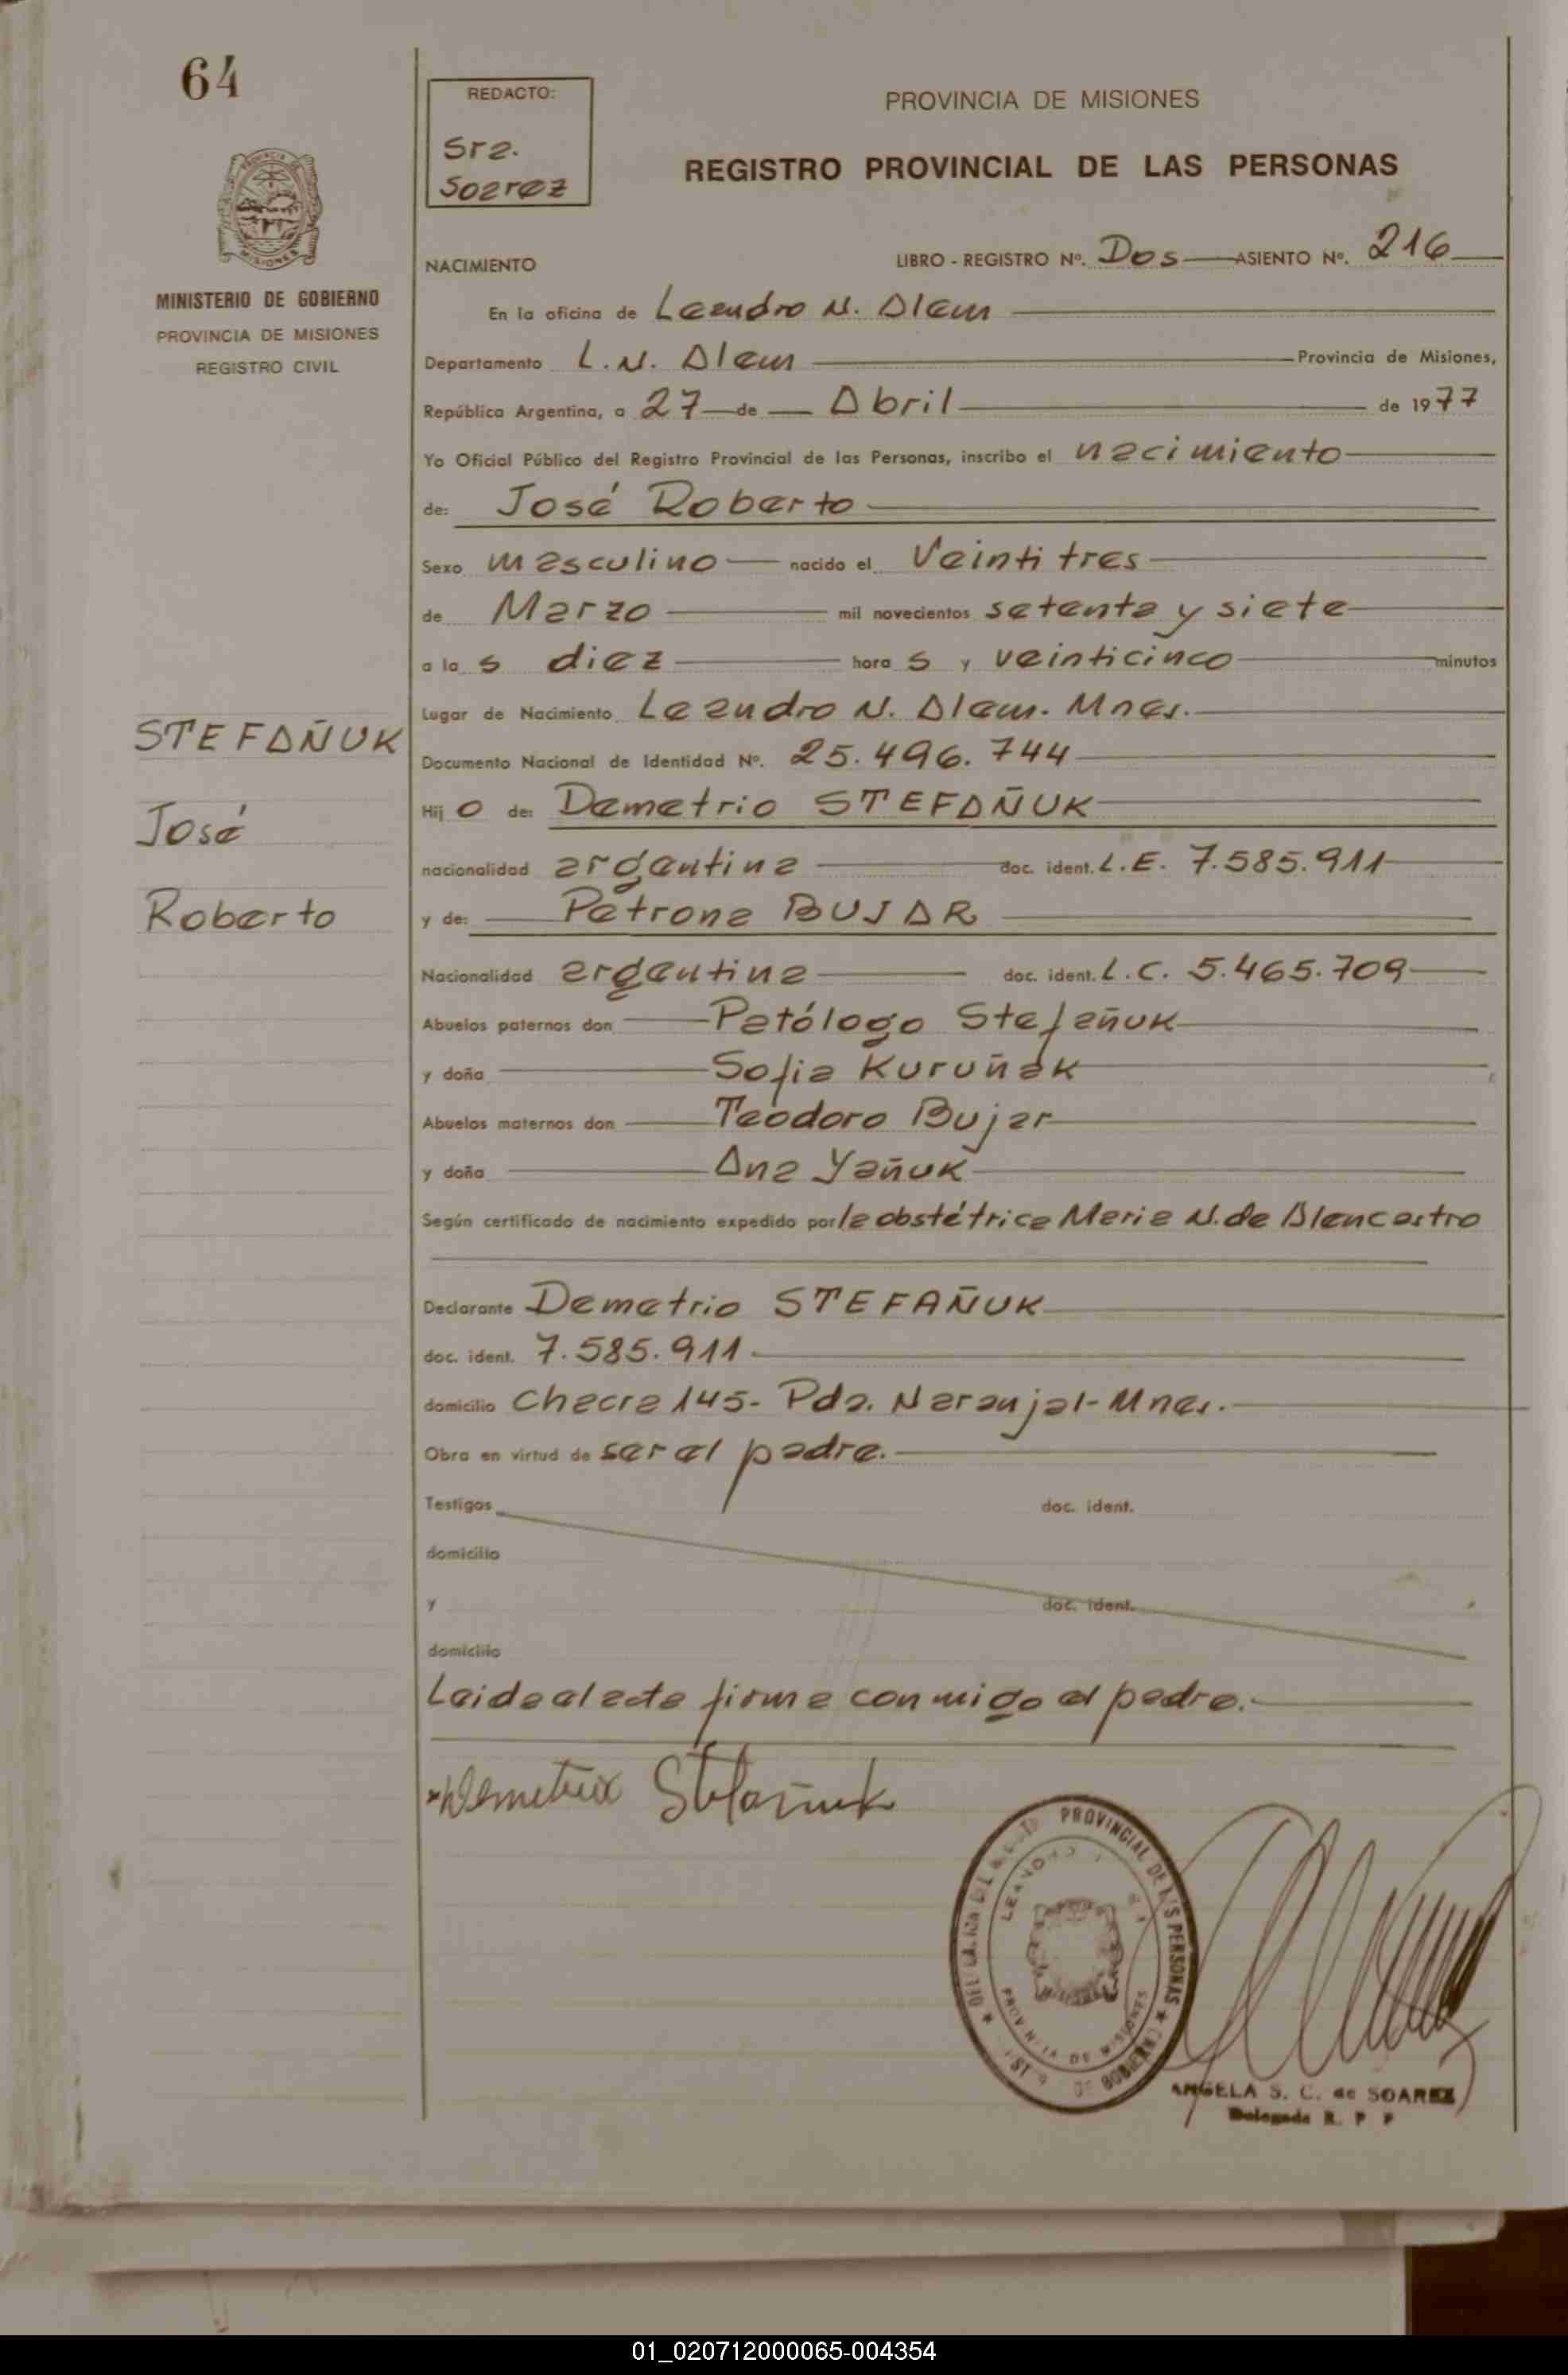 64
REDACTO:
Sra.
Soarez
PROVINCIA DE MISIONES
REGISTRO PROVINCIAL DE LAS PERSONAS
MISIONES
MINISTERIO DE GOBIERNO
PROVINCIA DE MISIONES
REGISTRO CIVIL
NACIMIENTO
LIBRO - REGISTRO Nº. Dos ASIENTO Nº. 216
En la oficina de Leandro N. Alem
Departamento L. N. Alem Provincia de Misiones,
República Argentina, a 27 de Abril de 1977
Yo Oficial Público del Registro Provincial de las Personas, inscribo el nacimiento
de: José Roberto
Sexo masculino nacido el Veintitres
de Marzo mil novecientos setenta y siete
a la s diez hora s y veinticinco minutos
Lugar de Nacimiento Leandro N. Alem. Mnes.
STEFAÑUK
Documento Nacional de Identidad Nº. 25.496.744
Hij o de: Demetrio STEFAÑUK
José
nacionalidad argentina doc. ident. L.E. 7.585.911
Roberto
y de: Petrona BUJAR
Nacionalidad argentina doc. ident. L.C. 5.465.709
Abuelos paternos don Patólogo Stefañuk
y doña Sofia Kuruñak
Abuelos maternos don Teodoro Bujar
y doña Ana Yañuk
Según certificado de nacimiento expedido por la obstétrica Maria N. de Blancastro
Declarante Demetrio STEFAÑUK
doc. ident. 7.585.911
domicilio Chacra 145- Pda. Naranjal- Mnes.
Obra en virtud de ser el padre.
Testigos doc. ident.
domicilio
y doc. ident.
domicilio
Leida el acta firma conmigo el padre.
Demetrio Stefañuk
PROVINCIAL DE LAS PERSONAS
PROVINCIA DE MISIONES
DE GOBIERNO
ANGELA S. C. de SOAREZ
Delegada R. P. P
01_020712000065-004354